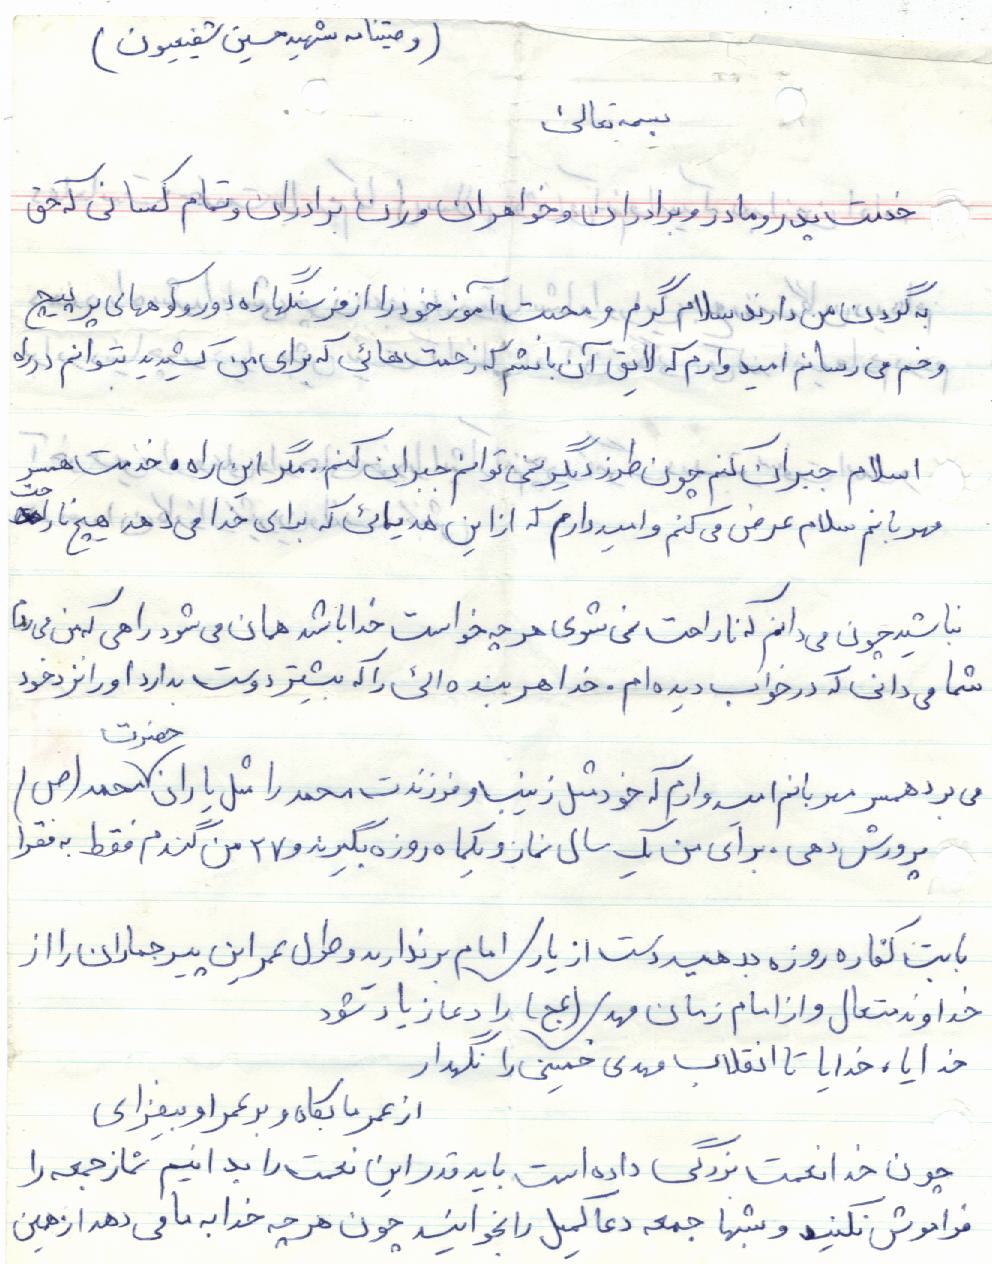 (وصیتنامه شهید حسین شفیعیون)
بسمه تعالی
خدمت پدر و مادر و برادران و خواهران و زن برادران و تمام کسانی که حق
به گردن من دارند سلام گرم و محبت آموز خود را از فرسنگها راه دور و کوههائی پر پیچ
و خم می رسانم امید وارم که لایق آن باشم که زحمت هائی که برای من کشیدید بتوانم در راه
اسلام جبران کنم چون طرز دیگر نمی توانم جبران کنم. مگر این راه. خدمت همسر
مهربانم سلام عرض می کنم و امیدوارم که از این هدیه‌ائی که برای خدا می دهد هیچ ناراحت
نباشید چون می دانم که ناراحت نمی شوی هر چه خواست خدا باشد همان می شود راهی که من می روم
شما می دانی که در خواب دیده ام. خدا هر بنده ائی را که بیشتر دوست بدارد او را نزد خود
می برد همسر مهربانم امید وارم که خود مثل زینب و فرزندت محمد را مثل یاران حضرت محمد (ص)
پرورش دهی. برای من یک سال نماز و یکماه روزه بگیرید و ۲۷ من گندم فقط به فقرا
بابت کفاره روزه بدهید دست از یاری امام برندارید و طول عمر این پیر جماران را از
خداوند متعال و از امام زمان مهدی (عج) را دعا زیاد شود
خدایا، خدایا تا انقلاب مهدی خمینی را نگهدار
از عمر ما بکاه و بر عمر او بیفزای
چون خدا نعمت بزرگی داده است باید قدر این نعمت را بدانیم نماز جمعه را
فراموش نکنید و شبها جمعه دعا کمیل را بخوانید چون هر چه خدا به ما می دهد از همین